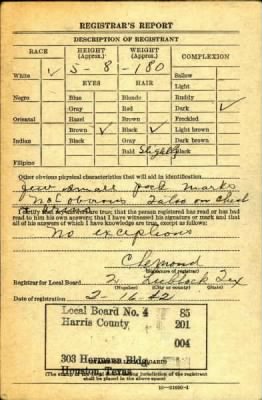 REGISTRAR'S REPORT
DESCRIPTION OF REGISTRANT
RACE HEIGHT (Approx.) WEIGHT (Approx.) COMPLEXION
5-8 180
White ✓ EYES HAIR Sallow
Light
Negro Blue Blonde Ruddy
Gray Red Dark ✓
Oriental Hazel Brown Freckled
Brown ✓ Black ✓ Light brown
Indian Black Gray Dark brown
Bald Slightly Black
Filipino
Other obvious physical characteristics that will aid in identification
few small pock marks
not obvious, also on chest
I certify that my answers are true; that the person registered has read or has had
read to him his own answers; that I have witnessed his signature or mark and that
all of his answers of which I have knowledge are true, except as follows:
No exceptions
(Signature of registrar)
Registrar for Local Board 2 Lubbock Tex
(Number) (City or county) (State)
Date of registration 2-16-42
Local Board No. 4 85
Harris County 201
004
303 Hermann Bldg.
Houston, Texas
(The stamp of the Local Board having jurisdiction of the registrant
shall be placed in the above space)